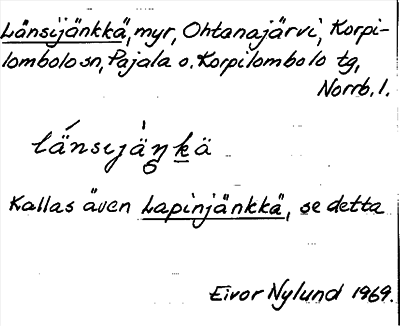 Länsijänkkä, myr, Ohtanajärvi, Korpi-
lombolo sn, Pajala o. Korpilombolo tg,
Norrb. l.
länsijäŋkä
Kallas även Lapinjänkkä, se detta
Eivor Nylund 1969.